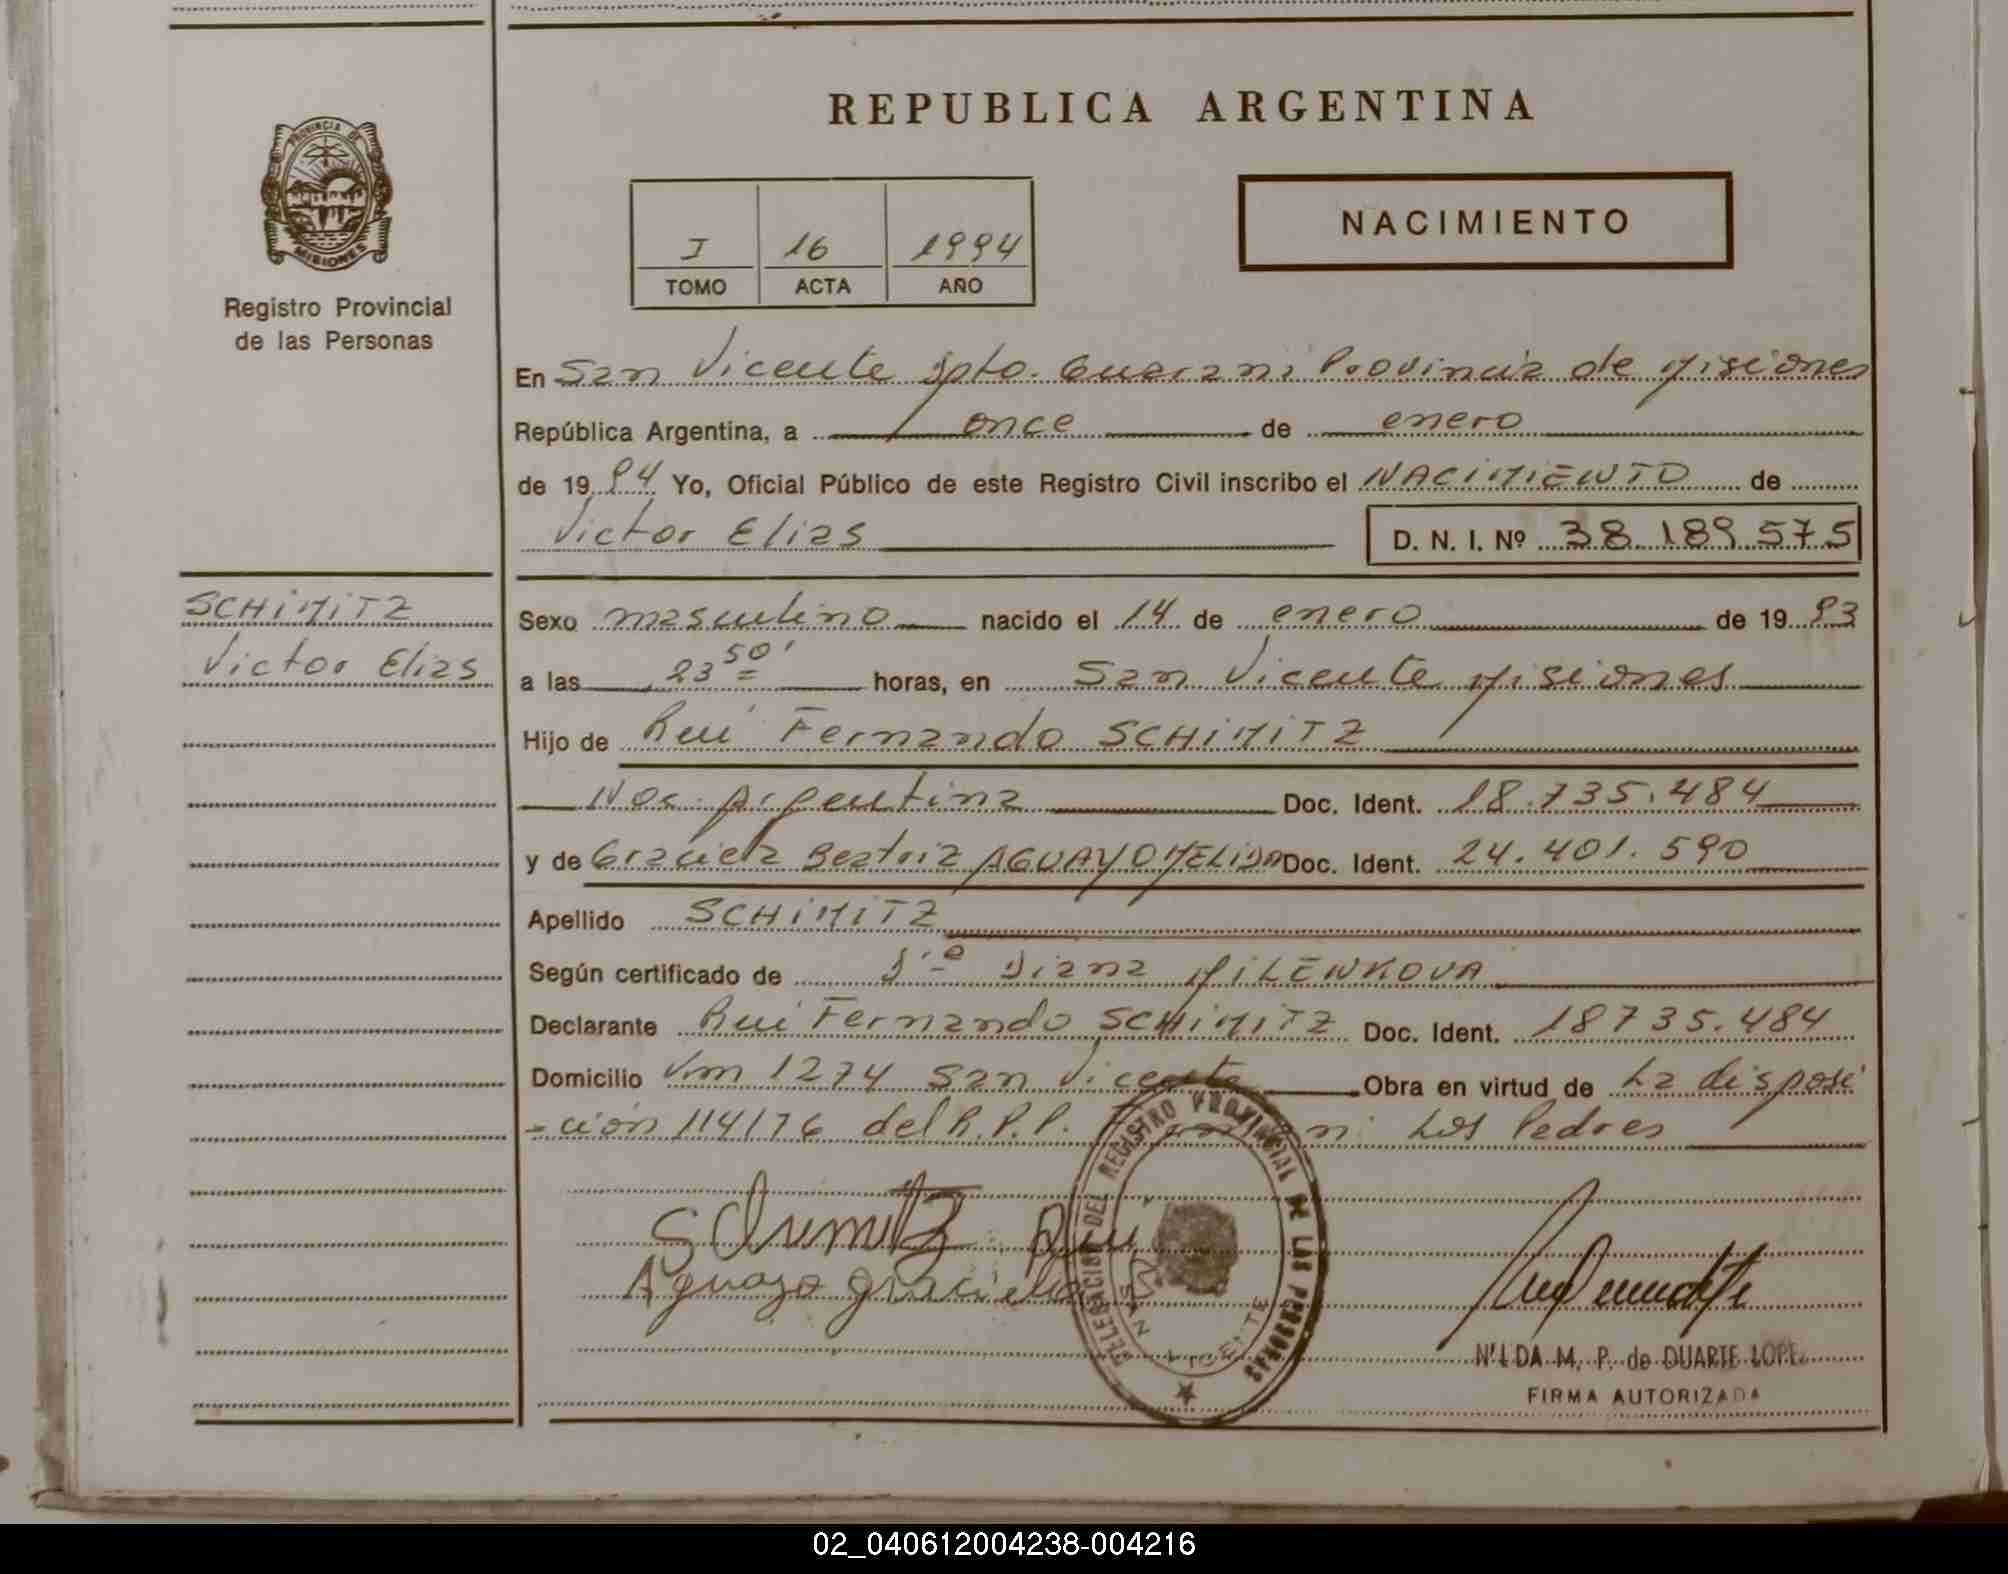 REPUBLICA ARGENTINA
PROVINCIA DE
MISIONES
Registro Provincial
de las Personas
I 16 1994
TOMO ACTA AÑO
NACIMIENTO
En San Vicente Dpto. Guarani Provincia de Misiones
República Argentina, a once de enero
de 1994 Yo, Oficial Público de este Registro Civil inscribo el NACIMIENTO de
Victor Elias D. N. I. Nº 38.189.575
SCHIMITZ
Victor Elias
Sexo masculino nacido el 14 de enero de 1993
a las 23 50' horas, en San Vicente Misiones
Hijo de Rui Fernando SCHIMITZ
Nac. Argentina Doc. Ident. 18.735.484
y de Graciela Beatriz AGUAYO MELIDA Doc. Ident. 24.401.590
Apellido SCHIMITZ
Según certificado de Dra Diana MILENKOVA
Declarante Rui Fernando SCHIMITZ Doc. Ident. 18735.484
Domicilio Km 1274 San Vicente Obra en virtud de La disposi
-ción 114/76 del R.P.P. Los Padres
Schimitz Rui
Aguayo Graciela
DELEGACION DEL REGISTRO PROVINCIAL DE LAS PERSONAS
VICENTE
NILDA M. P. de DUARTE LOPEZ
FIRMA AUTORIZADA
02_040612004238-004216